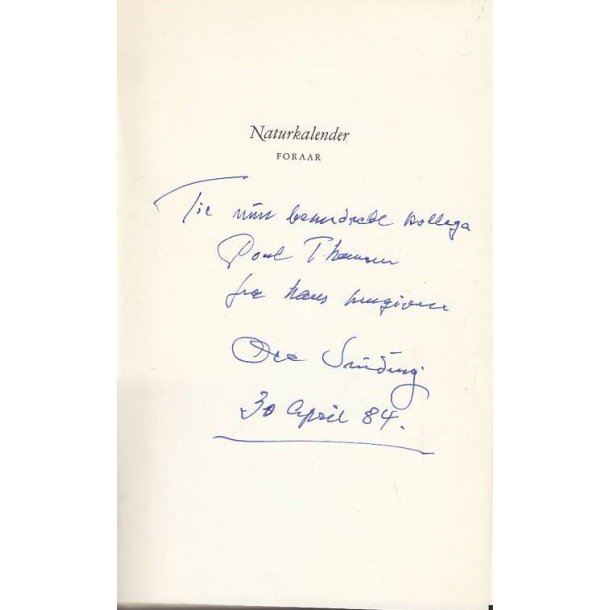 Naturkalender
FORAAR
Til min beundrede kollega
Poul Thomsen
fra hans hengivne
Ove
30 April 84.